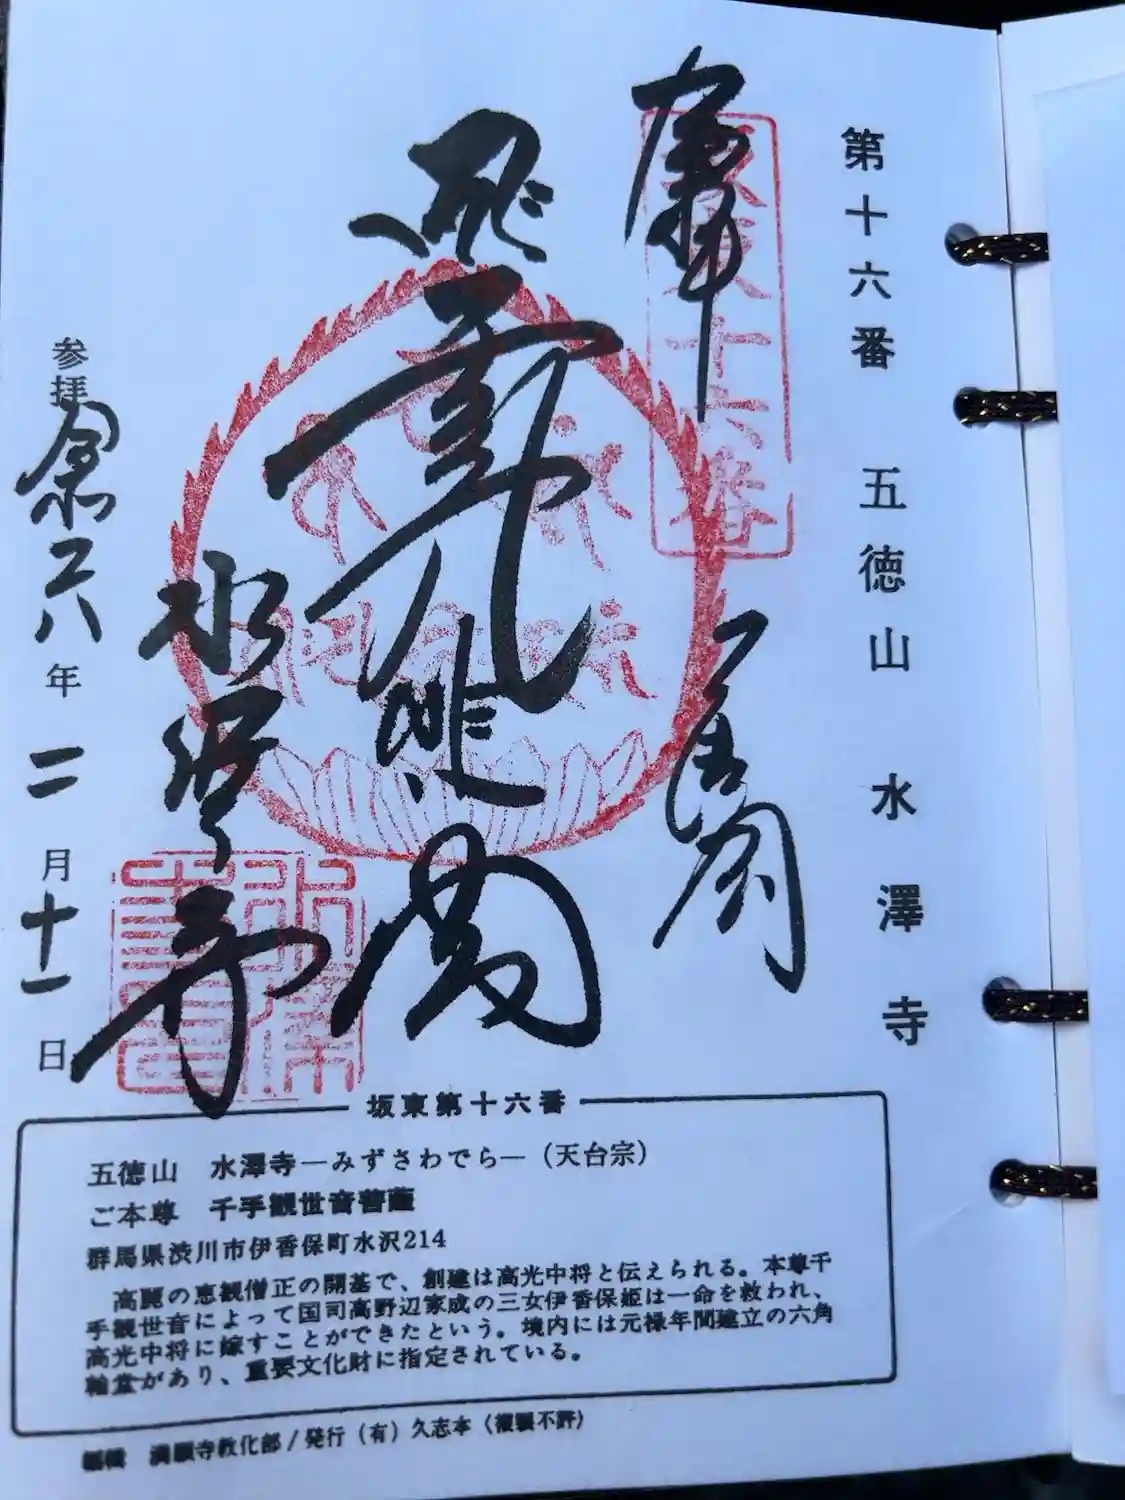 第十六番 五徳山 水澤寺
奉拝
坂東十六番
水澤寺
参拝令和六年二月十一日
坂東第十六番
五徳山 水澤寺―みずさわでら―(天台宗)
ご本尊 千手観世音菩薩
群馬県渋川市伊香保町水沢214
高麗の恵観僧正の開基で、創建は高光中将と伝えられる。本尊千
手観世音によって国司高野辺家成の三女伊香保姫は一命を救われ、
高光中将に嫁すことができたという。境内には元禄年間建立の六角
輪堂があり、重要文化財に指定されている。
編輯 満願寺教化部/発行(有)久志本(複製不許)